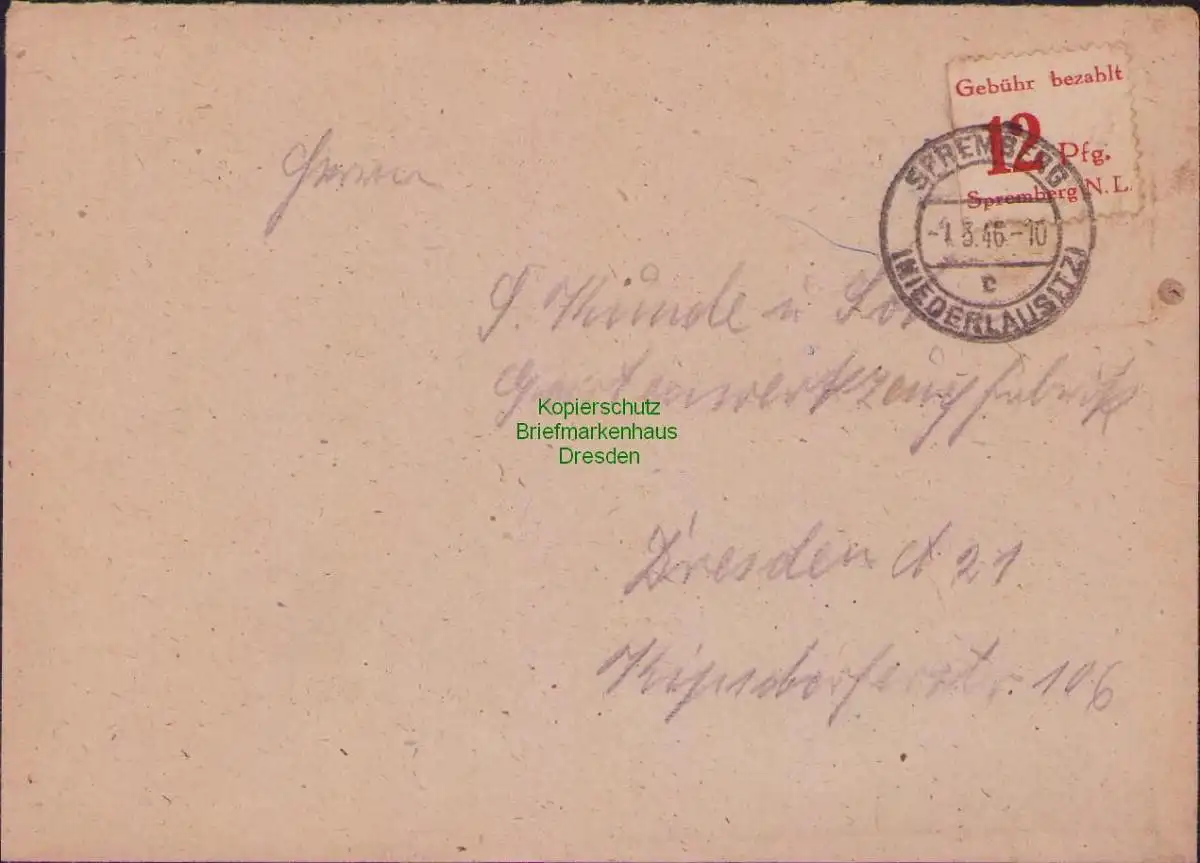 Gebühr bezahlt
12 Pfg.
Spremberg N. L.
SPREMBERG
-1.3.46.-10
c
(NIEDERLAUSITZ)
Herrn
S. Kunde u. So
Gartenwerkzeugfabrik
Kopierschutz
Briefmarkenhaus
Dresden
Dresden A 21
Kipsdorferstr. 106